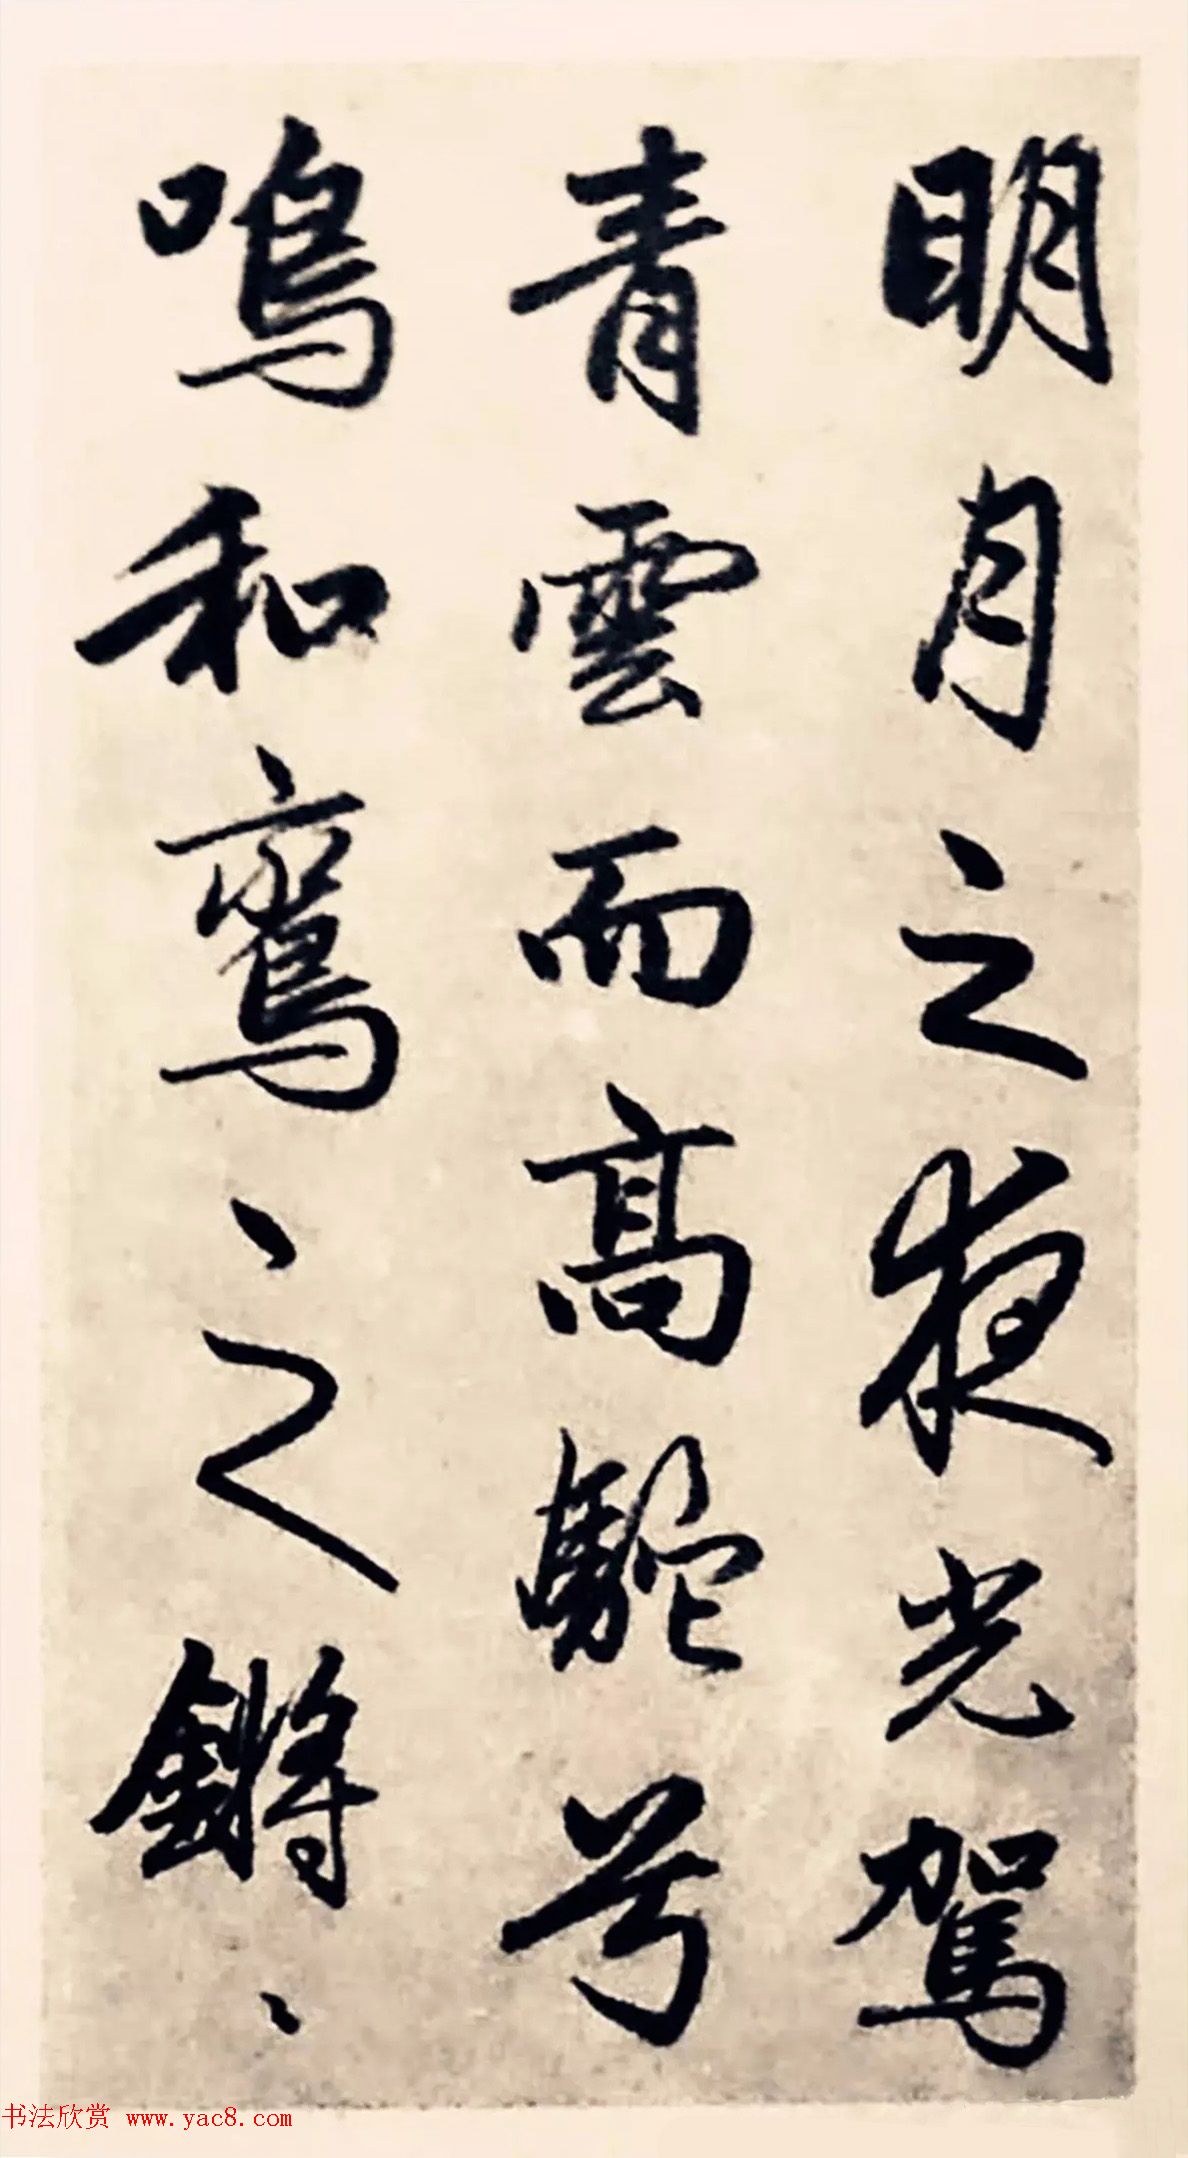 明月之夜光駕
青雲而高駝兮
鳴和鸞之鏘〻
书法欣赏 www.yac8.com